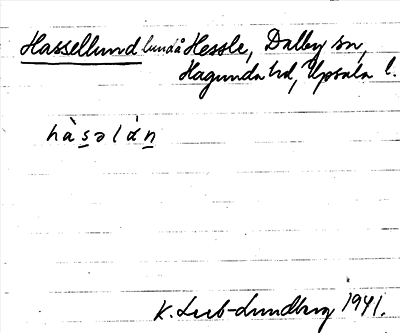 Hassellund lund å Hessle, Dalby sn,
Hagunda hd, Upsala l.
hàsəlán
K. Lieb-Lundberg 1941.